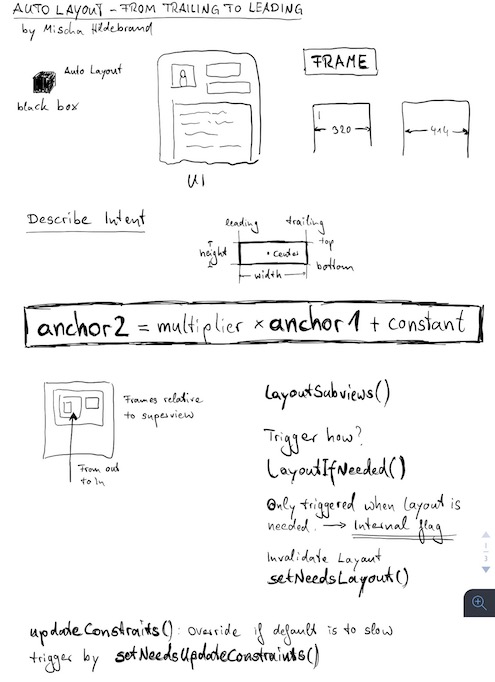 AUTO LAYOUT - FROM TRAILING TO LEADING
by Mischa Hildebrand
Auto Layout
black box
UI
FRAME
320
414
Describe Intent
leading trailing
top
height
center
bottom
width
anchor2 = multiplier × anchor1 + constant
Frames relative
to superview
From out
to In
LayoutSubviews()
Trigger how?
LayoutIfNeeded()
Only triggered when layout is
needed. → Internal flag
Invalidate Layout
setNeedsLayout()
1/3
updateConstraits(): override if default is to slow
trigger by setNeedsUpdateConstraints()